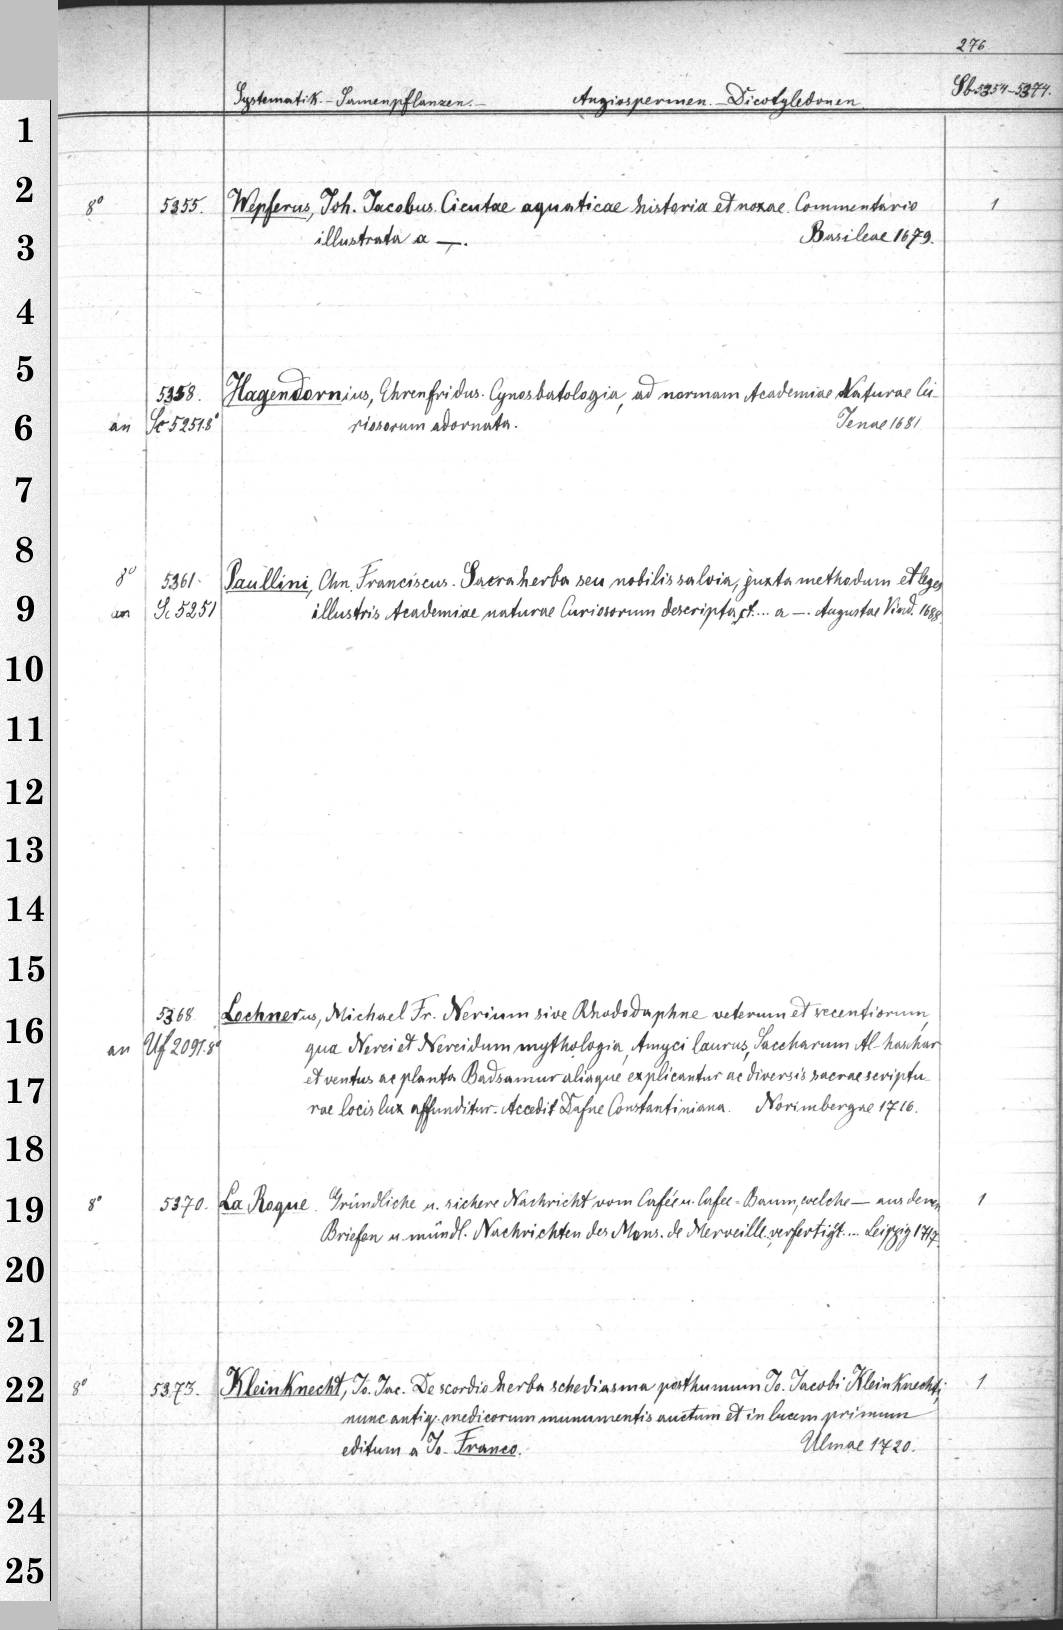 276
Systematik. - Samenpflanzen. - Angiospermen. - Dicotyledonen Sb 5354-5374.
1
2
8° 5355. Wepferus, Joh. Jacobus. Cicutae aquaticae historia et noxae. Commentario 1
illustrata a —. Basileae 1679.
3
4
5
5358. Hagendornius, Ehrenfridus. Cynosbatologia, ad normam Academiae Naturae Cu-
6
an Sc 5251.8° riosorum adornata. Jenae 1681
7
8
8° 5361. Paullini, Chn. Franciscus. Sacra herba seu nobilis salvia, juxta methodum et leges
9
an Sc 5251 illustris Academiae naturae Curiosorum descripta, et.... a —. Augustae Vind. 1688.
10
11
12
13
14
15
5368 Lochnerus, Michael Fr. Nerium sive Rhododaphne veterum et recentiorum,
16
an Uf 2091.8° qua Nerei et Nereidum mythologia, Amyci laurus, Saccharum Al-haschar
et ventus ac planta Badsamur aliaque explicantur ac diversis sacrae scriptu-
17
rae locis lux affunditur. Accedit Dafne Constantiniana. Norimbergae 1716.
18
19
8° 5370. La Roque. Gründliche u. sichere Nachricht vom Cafée u. Cafee-Baum, welche — aus denen 1
Briefen u. mündl. Nachrichten des Mons. de Merveille verfertigt.... Leipzig 1717.
20
21
22
8° 5373. Kleinknecht, Jo. Jac. De scordio herba schediasma posthumum Jo. Jacobi Kleinknechti, 1
nunc antiq. medicorum munumentis auctum et in lucem primum
23
editum a Jo. Franco. Ulmae 1720.
24
25